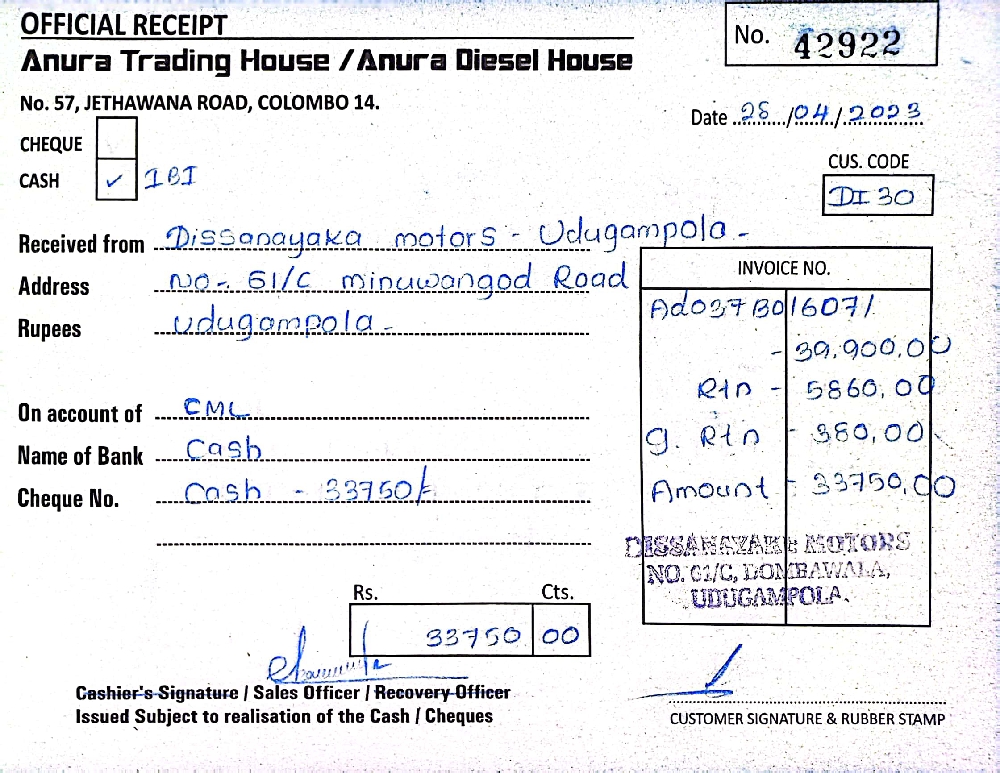 OFFICIAL RECEIPT
No. 42922
Anura Trading House / Anura Diesel House
No. 57, JETHAWANA ROAD, COLOMBO 14.
Date 28/04/2023
CHEQUE
CASH ✓ IBI
CUS. CODE
DI 30
Received from Dissanayaka motors - Udugampola -
Address No- 61/C minuwangod Road
Rupees Udugampola -
On account of CML
Name of Bank Cash
Cheque No. Cash - 33750/-
INVOICE NO.
Ad037B016071
- 39,900.00
Rtn - 5860,00
g. Rtn - 380,00
Amount - 33750,00
DISSANAYAKE MOTORS
NO. 61/C, DOMBAWALA,
UDUGAMPOLA.
Rs. Cts.
33750 00
Cashier's Signature / Sales Officer / Recovery Officer
Issued Subject to realisation of the Cash / Cheques
CUSTOMER SIGNATURE & RUBBER STAMP